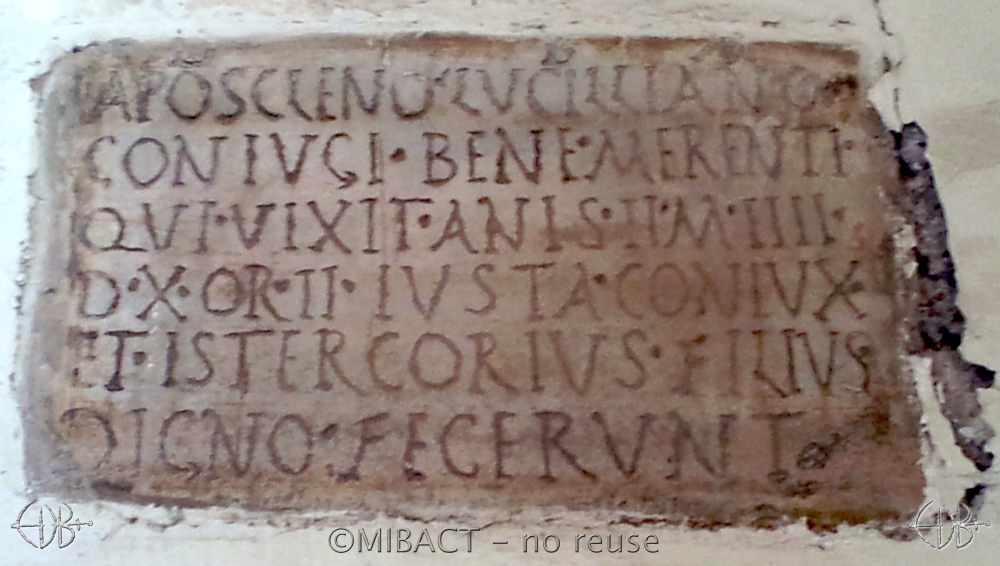 LUCILLIANO
CONIVGI · BENE · MERENTI ·
QVI · VIXIT · ANIS · II · M · IIII ·
D · X · OR · II · IVSTA · CONIVX ·
ET · ISTERCORIVS · FILIVS
DIGNO · FECERVNT
EDB EDB
©MIBACT – no reuse